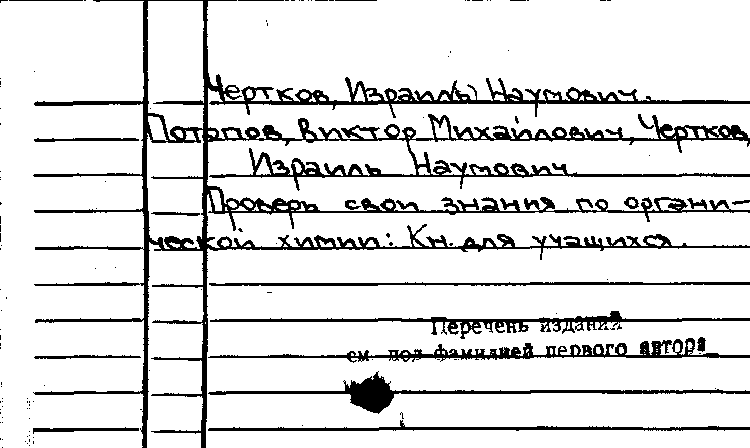 Чертков, Израиль Наумович.
Потапов, Виктор Михайлович, Чертков,
Израиль Наумович
Проверь свои знания по органи-
ческой химии: Кн. для учащихся.
Перечень изданий
см под фамилией первого автора